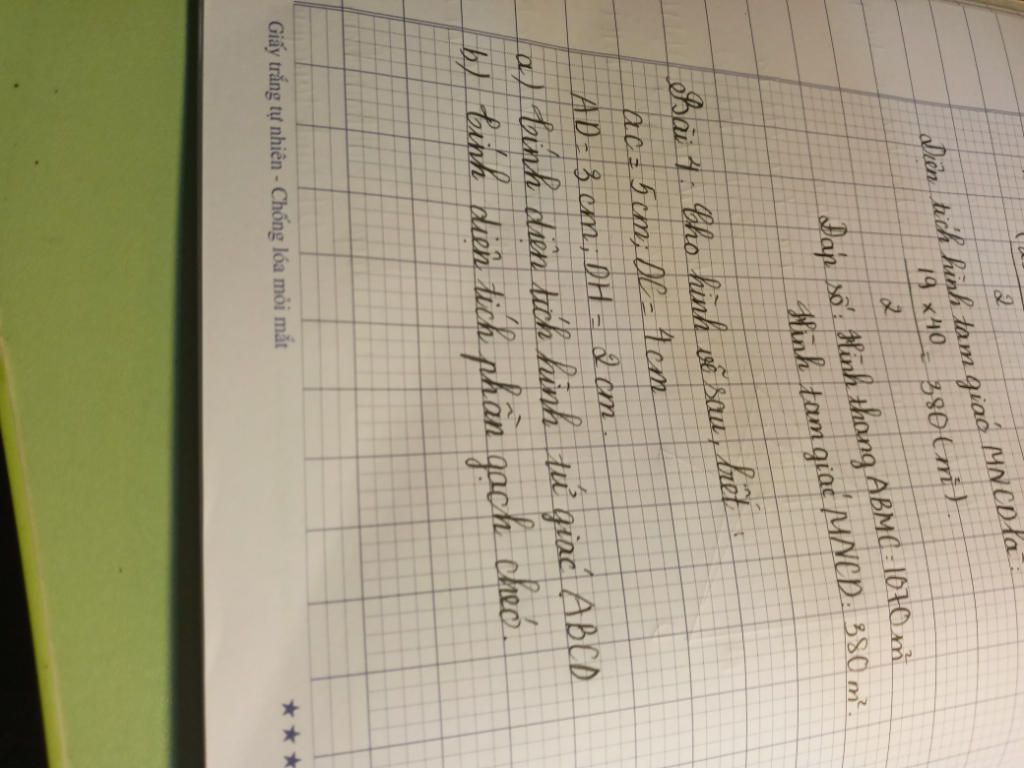 2
Diện tích hình tam giác MNCD là:
19 x 40 = 380 (m²).
2
Đáp số: Hình thang ABMC: 1070 m²
Hình tam giác MNCD: 380 m².
Bài 4: Cho hình vẽ sau, biết:
AC = 5cm; DC = 4cm
AD = 3cm; DH = 2cm.
a) tính diện tích hình tứ giác ABCD
b) tính diện tích phần gạch chéo.
Giấy trắng tự nhiên - Chống lóa mỏi mắt